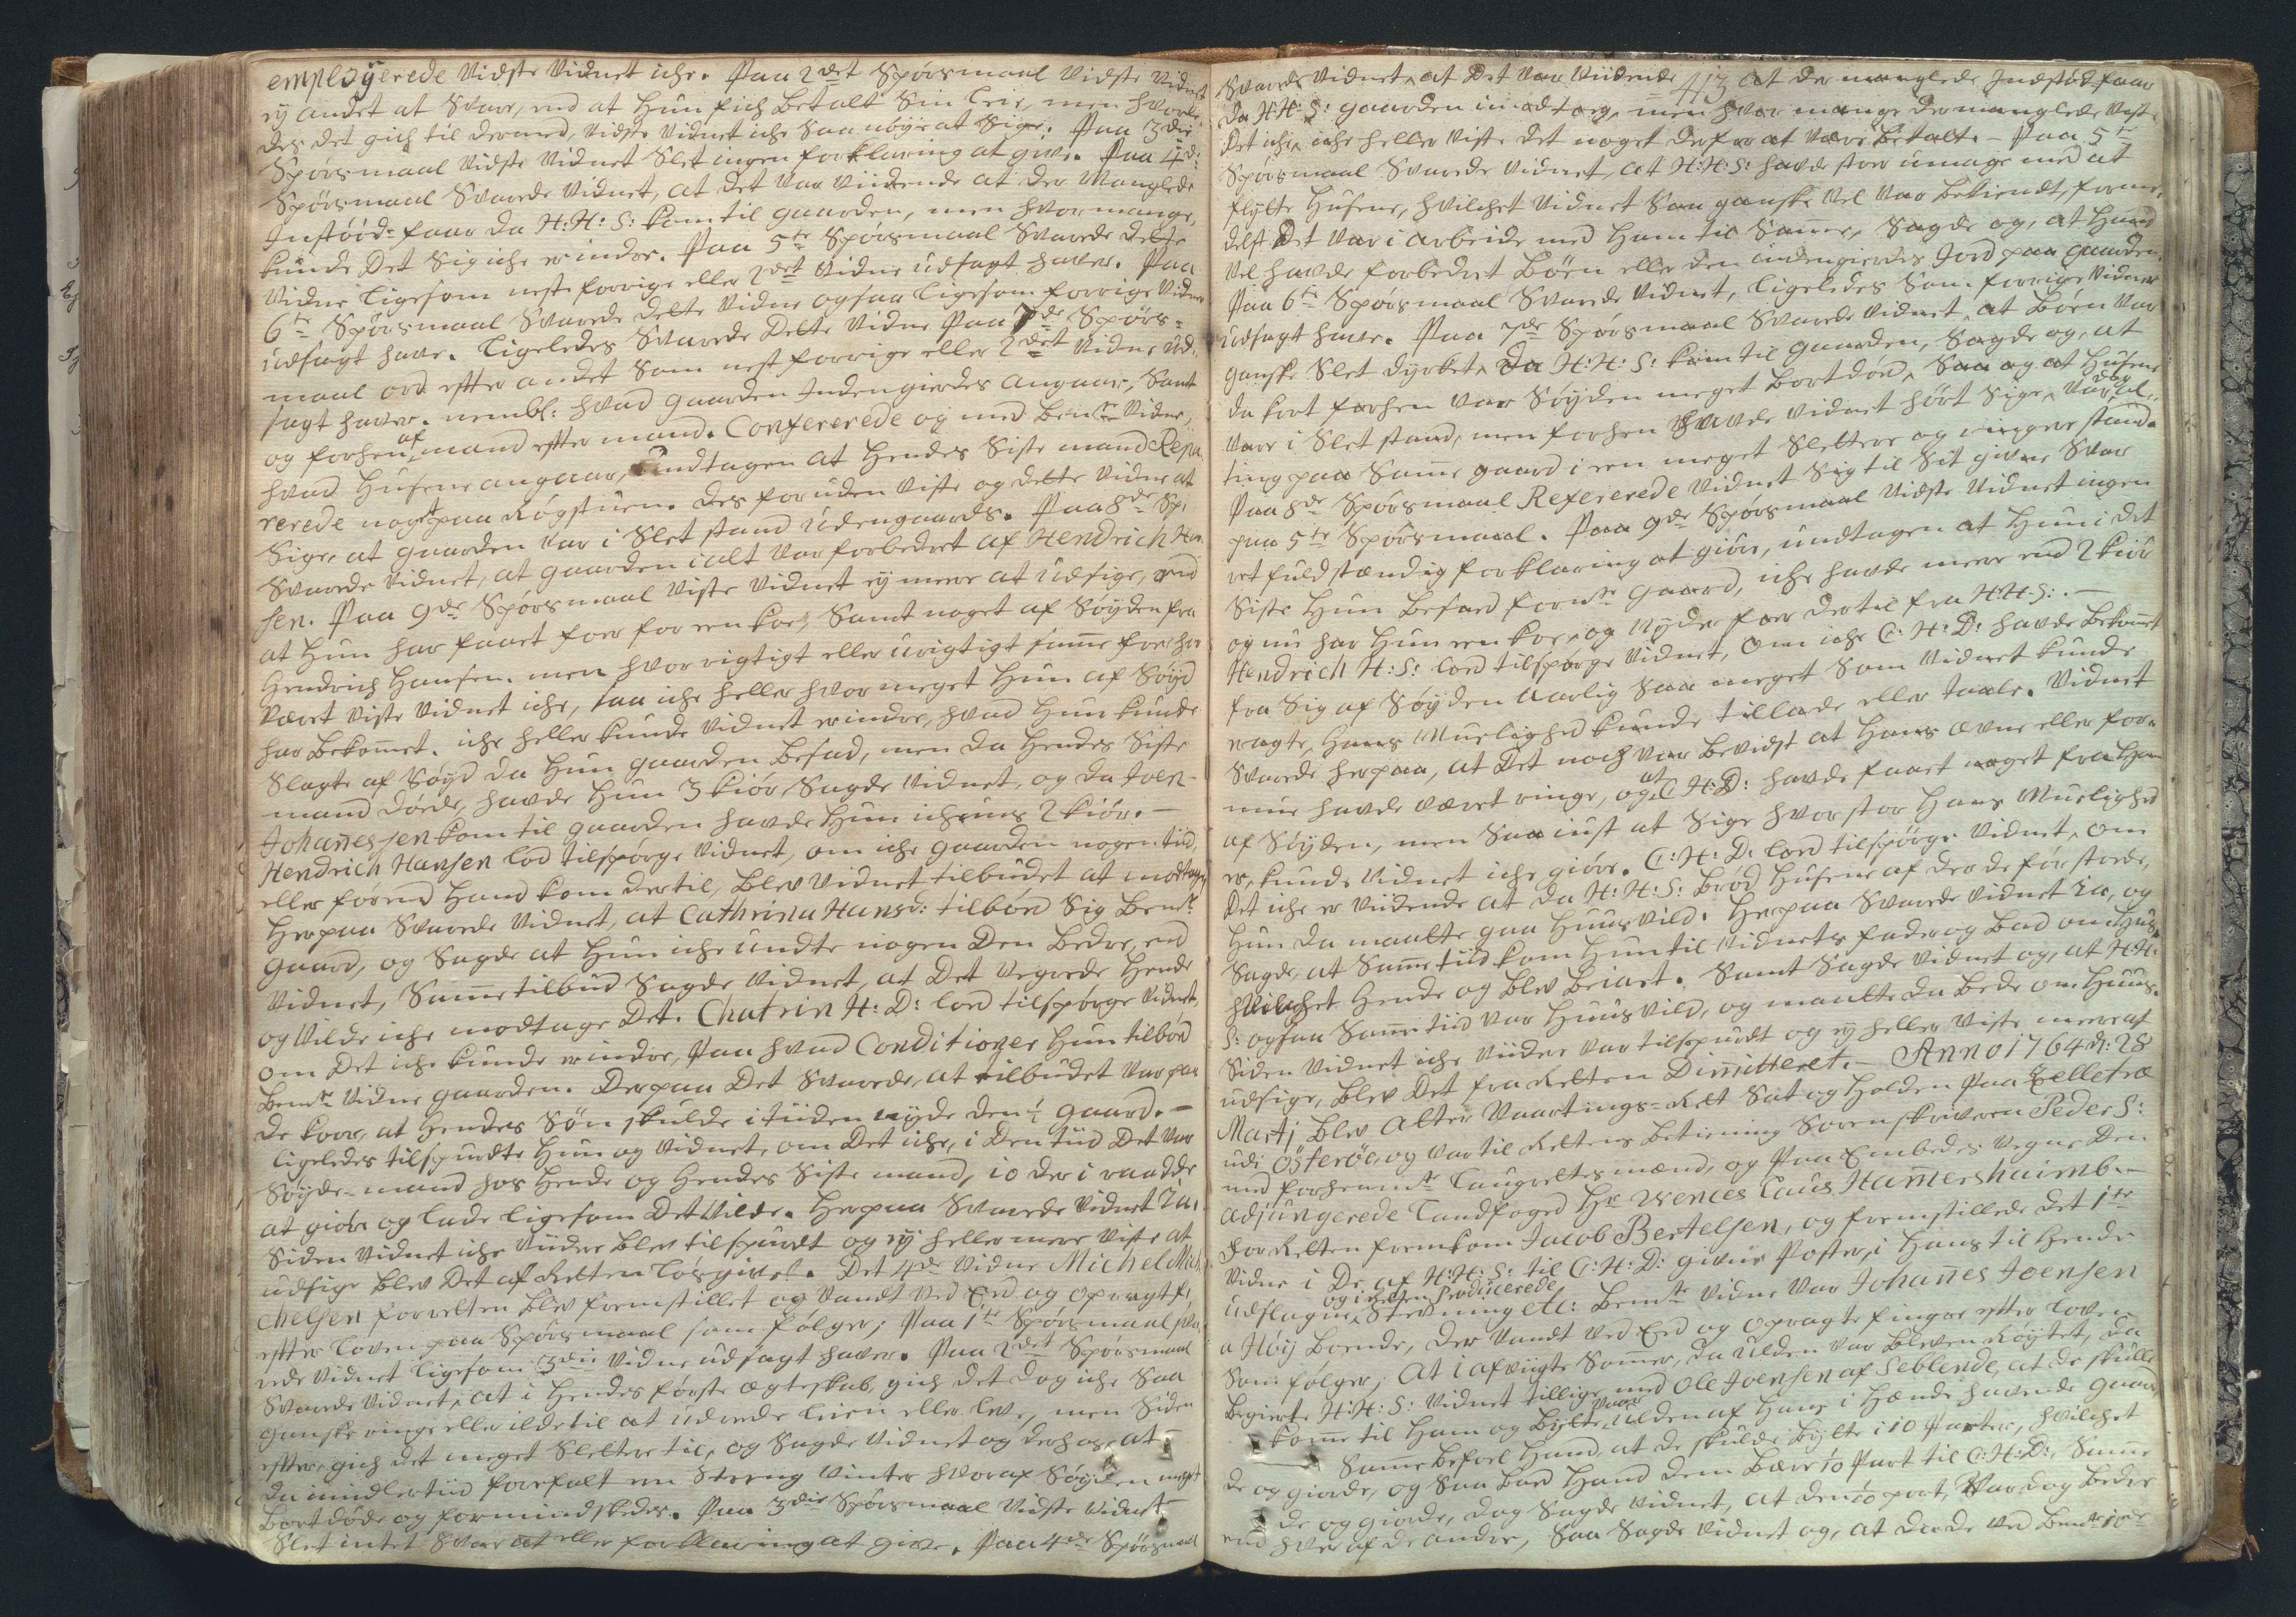 employerede vidste Vidnet iche. Paa 2det Spörsmaal vidste Vidnet
ey andet at Svare, end at hun fich betalt Sin leie, men hvorle-
des det gich til dermed, vidste Vidnet iche Saa nöye at Sige. Paa 3die
Spörsmaal vidste Vidnet Slet ingen forklaring at give. Paa 4d:
Spörsmaal Svarede Vidnet, at det var viidende at der Manglede
Instöd-faar da H: H: S: kom til gaarden, men hvor mange,
kunde det Sig iche erindre. Paa 5te Spörsmaal Svarede dette
Vidne ligesom nest forrige eller 2det Vidne udsagt haver. Paa
6te Spörsmaal Svarede dette Vidne ogsaa ligesom forrige Vidne
udsagt have. Ligeledes Svarede dette Vidne Paa 7de Spörs-
maal ord efter andet Som nest forrige eller 2det Vidne ud-
sagt haver. nembl: hvad gaarden Indengierdes angaar, Samt
og forhen af mand efter mand. Confererede og med bemte Vidne,
hvad Husene angaar, undtagen at hendes Siste mand Repa-
rerede noget paa Rögstuen. des foruden viste og dette Vidne at
Sige, at gaarden var i Slet stand udengaards. Paa 8de Sp:
Svarede Vidnet, at gaarden i alt var forbedret af Hendrich Han-
sen. Paa 9de Spörsmaal viste Vidnet ey mere at udsige, end
at hun har faaet foer for een koe, Samt noget af Söyden fra
Hendrich Hansen. men hvor rigtigt eller urigtigt Samme foer har
været viste Vidnet iche, saa iche heller hvor meget hun af Söyd
har bekommet. iche heller kunde Vidnet erindre, hvad hun kunde
Slagte af Söyd da hun gaarden besad, men da hendes Siste
mand döde, havde hun 3 kiör Sagde Vidnet, og da Joen-
Johannessen kom til gaarden havde hun ichuns 2 kiör. -
Hendrich Hansen lod tilspörge Vidnet, om iche gaarden nogen tiid,
eller förend hand kom dertil, blev Vidnet tilbudet at modtage,
herpaa Svarede Vidnet, at Cathrina Hansd: tilböd Sig bemte
gaard, og Sagde at hun iche undte nogen den bedre, end
Vidnet, Samme tilbud Sagde Vidnet, at det vegrede hende
og vilde iche modtage det. Chatrin H: D: lod tilspörge Vidnet,
om det iche kunde erindre, paa hvad Conditioner hun tilböd
bemte Vidne gaarden. Derpaa det Svarede, at tilbudet var paa
de kaar, at hendes Sön skulde i tiiden nyde den ½ gaard. -
ligeledes tilspurdte hun og Vidnet, om det iche, i den tiid det var
Söyde-mand hos hende og hendes Siste mand, io der i raadde
at giöre og lade ligesom det vilde. herpaa Svarede Vidnet Ja.
Siden Vidnet iche viidere blev tilspurdt og ey heller mere viste at
udsige blev det af Retten lösgivet. Det 4de Vidne Michel Mi-
chelsen for retten blev fremstillet og vandt ved Eed og opragt fi:
efter loven paa Spörsmaal som fölger; Paa 1te Spörsmaal sva-
rede Vidnet ligesom 3die Vidne udsagt haver. Paa 2det Spörsmaal
Svarede Vidnet, at i hendes förste ægteskab, gich det dog iche Saa
ganske ringe eller ilde til at udrede leien eller leve, men Siden
efter gich det meget Slettere til, og Sagde Vidnet og derhos, at
da imidlertiid forefalt een Streng vinter hvoraf Söyden meget
bortdöde og formindskedes. Paa 3die Spörsmaal vidste Vidnet
Slet intet Svar at eller forklaring at give. Paa 4de Spörsmaal
Svarede Vidnet, at det var viidende at der manglede Indstöd faar
da H: H: S: gaarden imodtog, men hvor mange der manglede viste
det iche, iche heller viste det noget derfor at være betalt. - Paa 5te
Spörsmaal Svarede Vidnet, at H: H: S: havde stor umage med at
flytte husene, hvilchet Vidnet Saa ganske vel var bekiendt, forme-
delst det var i arbeide med ham til Samme, Sagde og, at hand
vel havde forbedret böen eller den indengierdes Jord paa gaarden.
Paa 6te Spörsmaal Svarede Vidnet, ligeledes Som forrige Vidner
udsagt haver. Paa 7de Spörsmaal Svarede Vidnet, at böen var
ganske Slet dyrket, da H: H: S: kom til gaarden, Sagde og, at
da kort forhen var Söyden meget bortdöd, Saa og at husene
vare i Slet stand, men forhen havde Vidnet hört Sige, var dog al-
ting paa Samme gaard i een meget Slettere og ringere stand.
Paa 8de Spörsmaal Refererede Vidnet Sig til Sit givne Svar
paa 5te Spörsmaal. Paa 9de Spörsmaal vidste Vidnet ingen
ret fuldstændig forklaring at giöre, undtagen at hun i det
Siste hun besad formte gaard, iche havde mere end 2 kiör
og nu har hun een koe, og nyder foer dertil fra H: H: S: . -
Hendrich H: S: lod tilspörge Vidnet, om iche C: H: D: havde bekommet
fra Sig af Söyden aarlig Saa meget Som Vidnet kunde
eragte, hans Muelighed kunde tillade eller taale. Vidnet
Svarede herpaa, at det noch var bevidst at hans ævne eller for-
mue havde været ringe, og at C: H: D: havde faaet noget fra ham
af Söyden, men Saa iust at Sige hvor stor hans Muelighed
er, kunde Vidnet iche giöre. C: H: D: lod tilspörge Vidnet, om
det iche er viidende at da H: H: S: bröd husene af der de för stode,
hun da maatte gaa huusvild. herpaa Svarede Vidnet Ja, og
Sagde, at Samme tiid kom hun til Vidnets fader og bad om huus,
hvilchet hende og blev beiaet. Samt Sagde Vidnet og, at H: H:
S: ogsaa Samme tiid var huusvild, og maatte da bede om huus.
Siden Vidnet iche viidere var tilspurdt og ey heller viste mere at
udsige, blev det fra Retten Dimitteret. - Anno 1764 d: 28
Martj blev atter Vaartings-Ret Sat og holden paa Selletræ
udi Österöe, og var til Rettens betiening Sorenskriveren Peder S:
med forhenmte Laugrettesmænd, og paa Embedes vegne den
adjungerede Landfoged Hr Wences Laus Hammershaimb. -
For Retten fremkom Jacob Bertelsen, og fremstillede det 1te
Vidne i De af H: H: S: til C: H: D: givne Poster, i hans til hende
udslagne og i Retten Producerede Stevning etc: bemte Vidne var Johannes Joensen
a Höy boende, der vandt ved Eed og opragte fingre efter loven
Som fölger; At i afvigte Sommer, da ulden var bleven Röytet, da
begierte H: H: S: Vidnet tillige med Ole Joensen af Seblende, at de skulle
komme til ham og bytte ulden af hans i hænde havende gaard,
Samme befoel hand, at de skulde bytte i 10 Parter, hvilchet
de og giorde, og Saa bad hand dem bære 1/10 Part til C: H: D:, Samme
de og giorde, dog Sagde Vidnet, at den 1/10 part, var dog bedre
end hver af de andre, Saa Sagde Vidnet og, at da de ved bemte 10de